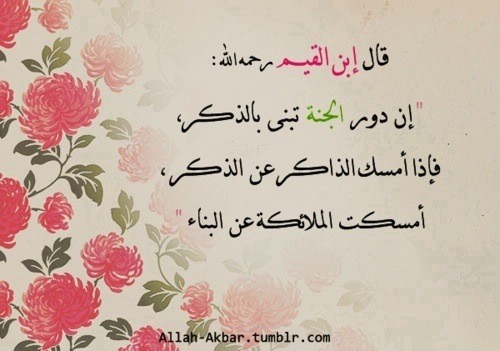 قال إبن القيم رحمه الله :
"إن دور الجنة تبنى بالذكر،
فإذا أمسك الذاكر عن الذكر،
أمسكت الملائكة عن البناء "
Allah-Akbar.tumblr.com